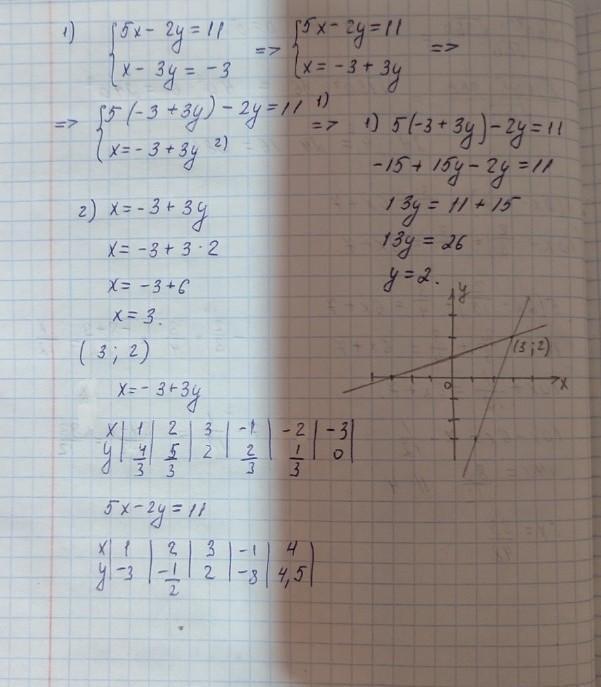 1) {5x - 2y = 11 => {5x - 2y = 11 =>
{x - 3y = -3 {x = -3 + 3y
=> {5(-3 + 3y) - 2y = 11 1) =>
{x = -3 + 3y 2)
1) 5(-3 + 3y) - 2y = 11
-15 + 15y - 2y = 11
13y = 11 + 15
13y = 26
y = 2.
2) x = -3 + 3y
x = -3 + 3 · 2
x = -3 + 6
x = 3.
(3; 2)
y
(3; 2)
0 x
x = -3 + 3y
x | 1 | 2 | 3 | -1 | -2 | -3 |
y | 4/3 | 5/3 | 2 | 2/3 | 1/3 | 0 |
5x - 2y = 11
x | 1 | 2 | 3 | -1 | 4 |
y | -3 | -1/2 | 2 | -8 | 4,5 |